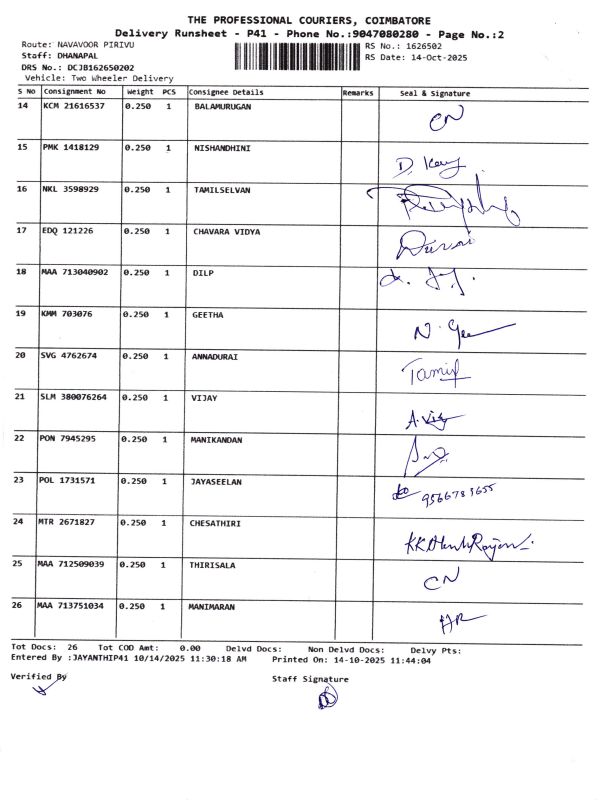 THE PROFESSIONAL COURIERS, COIMBATORE
Delivery Runsheet - P41 - Phone No.:9047080280 - Page No.:2
Route: NAVAVOOR PIRIVU RS No.: 1626502
Staff: DHANAPAL RS Date: 14-Oct-2025
DRS No.: DCJB162650202
Vehicle: Two Wheeler Delivery
S No Consignment No Weight PCS Consignee Details Remarks Seal & Signature
14 KCM 21616537 0.250 1 BALAMURUGAN CN
15 PMK 1418129 0.250 1 NISHANDHINI D.
16 NKL 3598929 0.250 1 TAMILSELVAN
17 EDQ 121226 0.250 1 CHAVARA VIDYA
18 MAA 713040902 0.250 1 DILP
19 KMM 703076 0.250 1 GEETHA N. Gee
20 SVG 4762674 0.250 1 ANNADURAI Tamil
21 SLM 380076264 0.250 1 VIJAY A. Vij
22 PON 7945295 0.250 1 MANIKANDAN
23 POL 1731571 0.250 1 JAYASEELAN 9566783655
24 MTR 2671827 0.250 1 CHESATHIRI
25 MAA 712509039 0.250 1 THIRISALA CN
26 MAA 713751034 0.250 1 MANIMARAN
Tot Docs: 26 Tot COD Amt: 0.00 Delvd Docs: Non Delvd Docs: Delvy Pts:
Entered By :JAYANTHIP41 10/14/2025 11:30:18 AM Printed On: 14-10-2025 11:44:04
Verified By Staff Signature